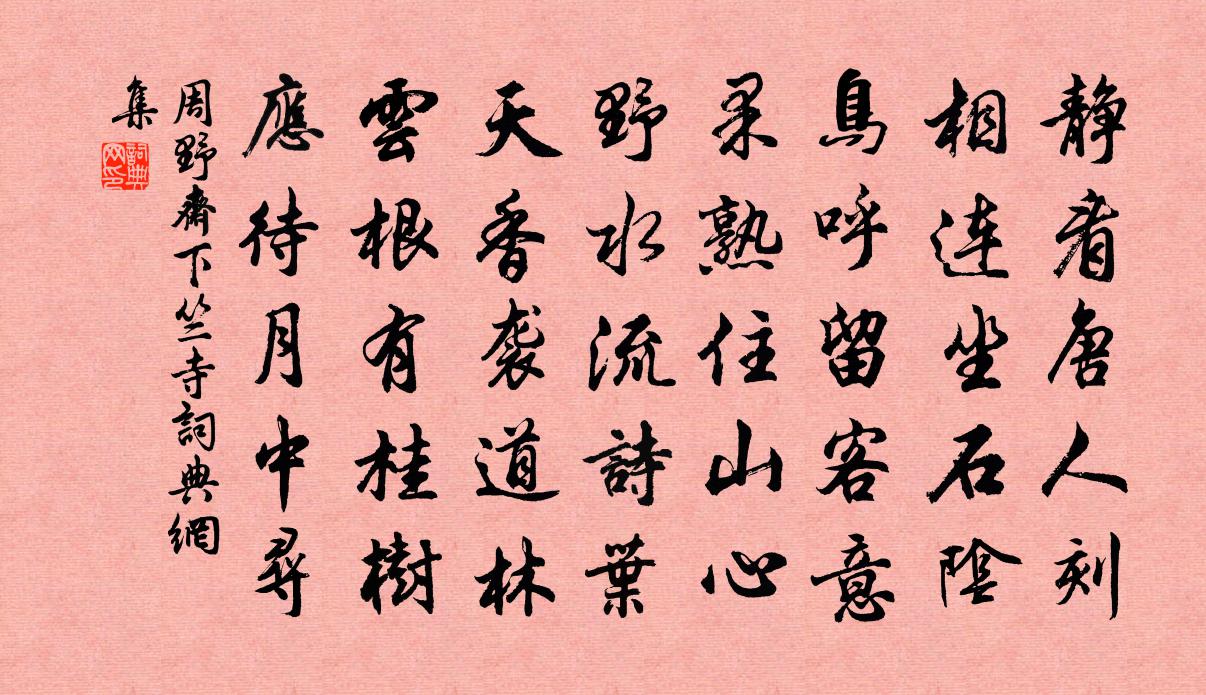 静看唐人刻
相連坐石陰
鳥呼留客意
果熟住山心
野水流詩葉
天香袭道林
雲根有桂樹
應待月中尋
周野齋下竺寺詞典網
集
詞典
网印